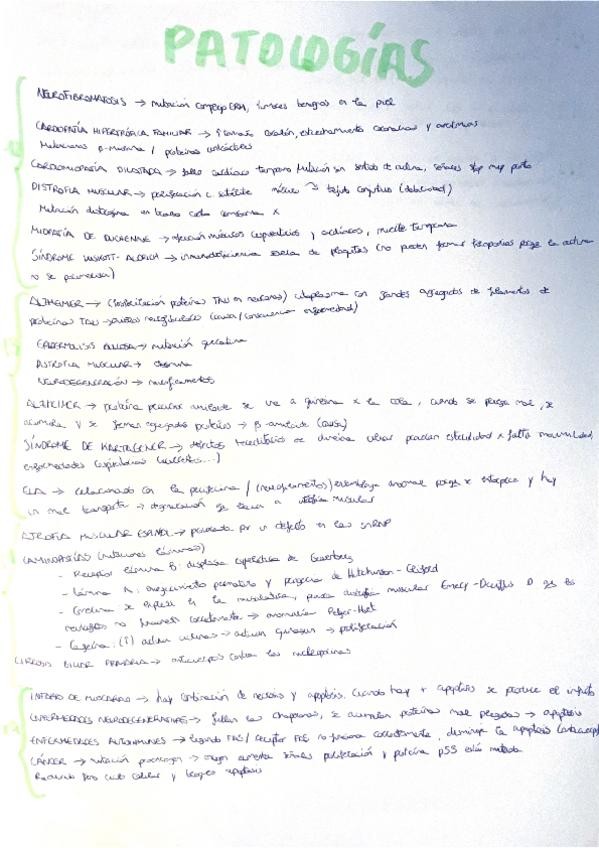 PATOLOGÍAS
NEUROFIBROMATOSIS → mutación complejo ERM, tumores benignos en la piel
CARDIOPATÍA HIPERTRÓFICA FAMILIAR → ↑ tamaño corazón, estrechamiento coronarias y arritmias
Mutaciones β-miosina / proteínas contráctiles
CARDIOMIOPATÍA DILATADA → fallo cardíaco temprano Mutación sin sentido de actina,
DISTROFIA MUSCULAR → tejido conjuntivo (debilidad)
Mutación distrofina en brazo corto cromosoma X
MIOPATÍA DE DUCHENNE → afección músculos esqueléticos y cardíacos, muerte temprana
SÍNDROME WISKOTT-ALDRICH → inmunodeficiencia escasez de plaquetas (no pueden formar filopodios porque la actina
no se polimeriza)
ALZHEIMER → (fosforilación proteína TAU en neuronas) citoplasma con grandes agregados de filamentos de
proteína TAU → ovillos neurofibrilares (causa/consecuencia enfermedad)
EPIDERMOLISIS BULLOSA → mutación queratina
DISTROFIA MUSCULAR → desmina
NEURODEGENERACIÓN → neurofilamentos
ALZHEIMER → proteína precursor amiloide se une a quinesina x la cola, cuando se pliega mal, se
acumula y se forman agregados proteicos → β-amiloide (causa)
SÍNDROME DE KARTAGENER → defectos hereditarios de dineína ciliar pueden esterilidad x falta movilidad,
enfermedades respiratorias
ELA → relacionado con la periferina / (neurofilamentos) anormal porque x y hay
un mal transporte → degeneración que lleva a atrofia muscular
ATROFIA MUSCULAR ESPINAL → provocada por un defecto en las snRNP
LAMINOPATÍAS (mutaciones láminas)
- Receptor lámina B: displasia esquelética de Greenberg
- Lámina A: envejecimiento prematuro y progeria de Hutchinson-Gilford
- Emerina se expresa en la musculatura, produce distrofia muscular Emery-Dreifuss
no funcionan correctamente → anomalía Pelger-Huët
- (↑) activa → activan → proliferación
CIRROSIS BILIAR PRIMARIA → anticuerpos contra las nucleoporinas
INFARTO DE MIOCARDIO → hay combinación de necrosis y apoptosis. Cuando hay + apoptosis se produce el infarto
ENFERMEDADES NEURODEGENERATIVAS → fallan las chaperonas, se acumulan proteínas mal plegadas → apoptosis
ENFERMEDADES AUTOINMUNES → ligando FAS / receptor FAS no funciona correctamente, disminuye la apoptosis
CÁNCER → mutación protooncogen → oncogen aumenta señales proliferación y proteína p53 está mutada
ciclo celular y apoptosis